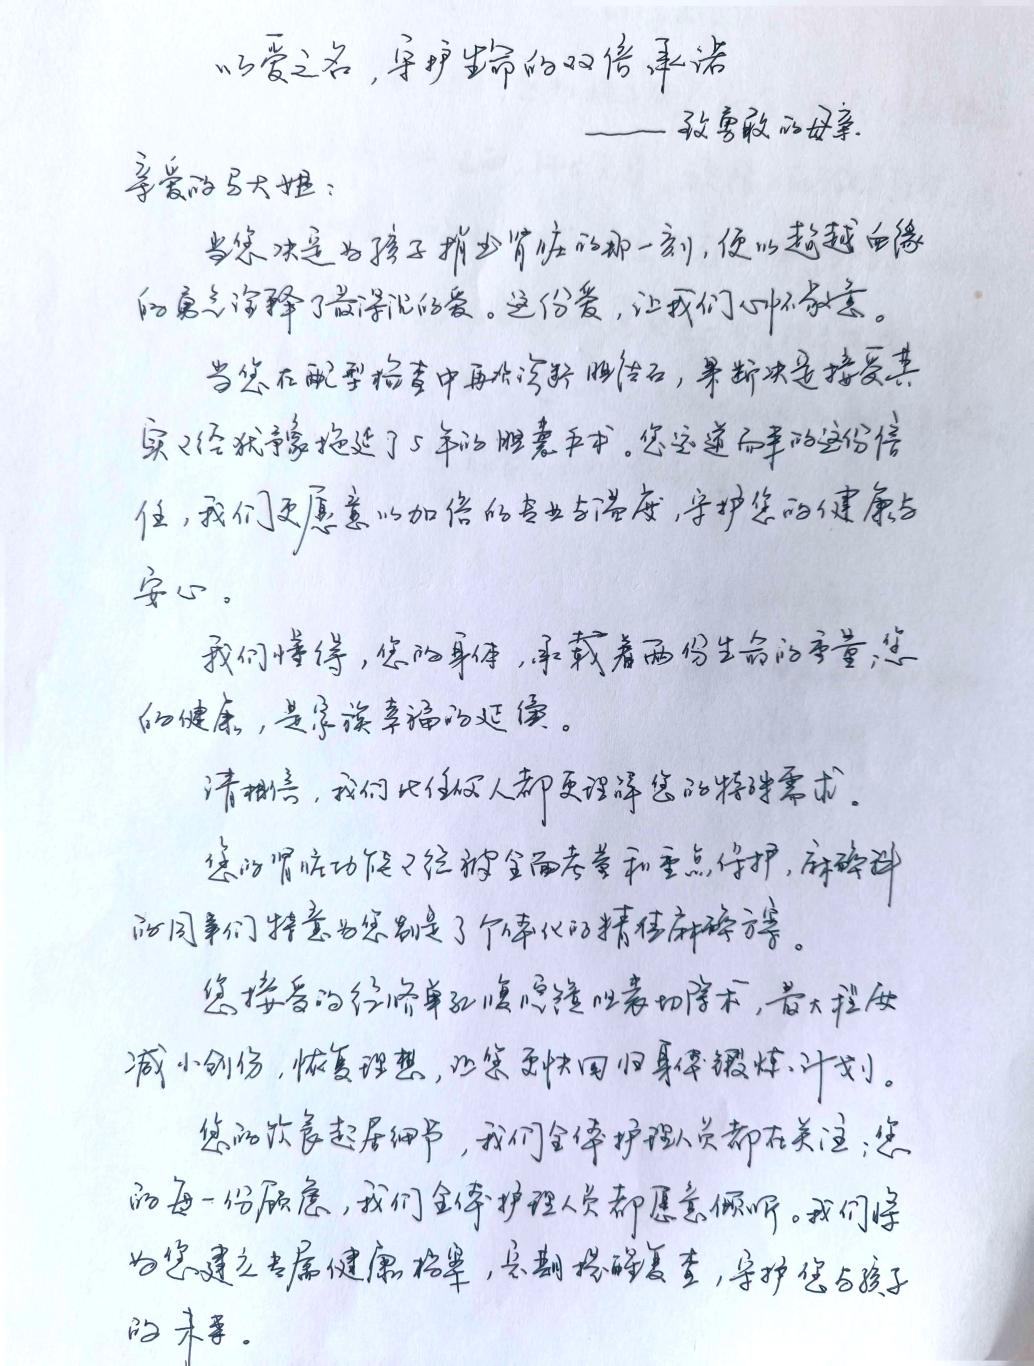 以爱之名，守护生命的双倍承诺
——致勇敢的母亲
亲爱的马大姐：
当您决定为孩子捐出肾脏的那一刻，便以超越血缘
的勇气诠释了最深沉的爱。这份爱，让我们心怀敬意。
当您在配型检查中再次诊断胆结石，果断决定接受其
实已经犹豫拖延了5年的胆囊手术。您这逆而来的这份信
任，我们更愿意以加倍的专业与温度，守护您的健康与
安心。
我们懂得，您的身体，承载着两份生命的重量；您
的健康，是家族幸福的延续。
请相信，我们比任何人都更理解您的特殊需求。
您的肾脏功能已经被全面考量和重点保护，麻醉科
的同事们特意为您制定了个体化的精准麻醉方案。
您接受的经脐单孔腹腔镜胆囊切除术，最大程度
减小创伤，恢复理想，让您更快回归身体锻炼计划。
您的饮食起居细节，我们全体护理人员都在关注；您
的每一份顾虑，我们全体护理人员都愿意倾听。我们将
为您建立专属健康档案，定期提醒复查，守护您与孩子
的未来。